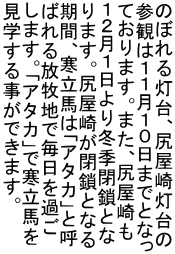 のぼれる灯台、尻屋崎灯台の
参観は11月10日までとなっ
ております。また、尻屋崎も
12月1日より冬季閉鎖とな
ります。尻屋崎が閉鎖となる
期間、寒立馬は「アタカ」と呼
ばれる放牧地で毎日を過ご
します。「アタカ」で寒立馬を
見学する事ができます。